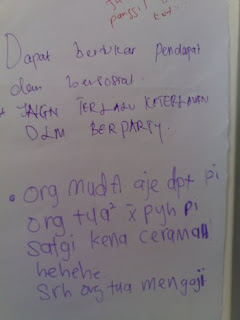 Dapat bertukar pendapat
dan bersosial.
JNGN TERLALU KETERLALUAN
DLM BERPARTY.
• org muda aje dpt pi
org tua² x pyh pi
satgi kena ceramah
hehehe.
Srh org tua mengaji